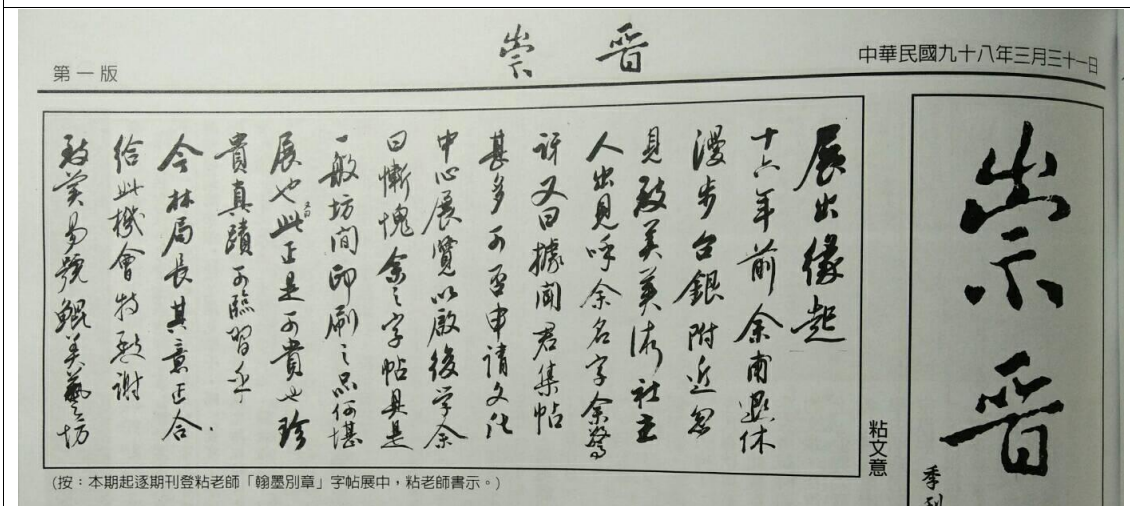 第一版
崇晉
中華民國九十八年三月三十一日
展出緣起
十六年前余甫退休
漫步台銀附近忽
見敦美美術社主
人出見呼余名字余驚
訝又曰據聞君集帖
甚多可否申請文化
中心展覽以啟後学余
曰慚愧余之字帖具是
一般坊間印刷之品何堪
展也君曰此正是可貴也珍
貴真蹟可臨習乎
今林局長其意正合
給此機會特致謝
敦美易號鯤美藝坊
粘文意
(按：本期起逐期刊登粘老師「翰墨別章」字帖展中，粘老師書示。)
崇晉
季刊